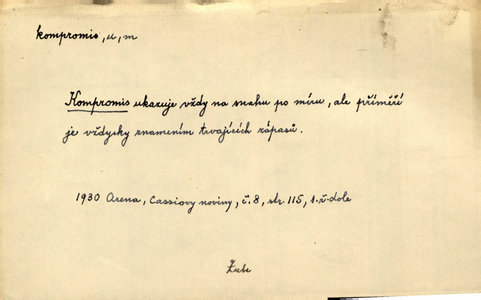 kompromis, u, m
Kompromis ukazuje vždy na snahu po míru, ale příměří
je vždycky znamením trvajících zápasů.
1930 Arena, Cassiovy noviny, č. 8, str. 115, 1. ř. dole